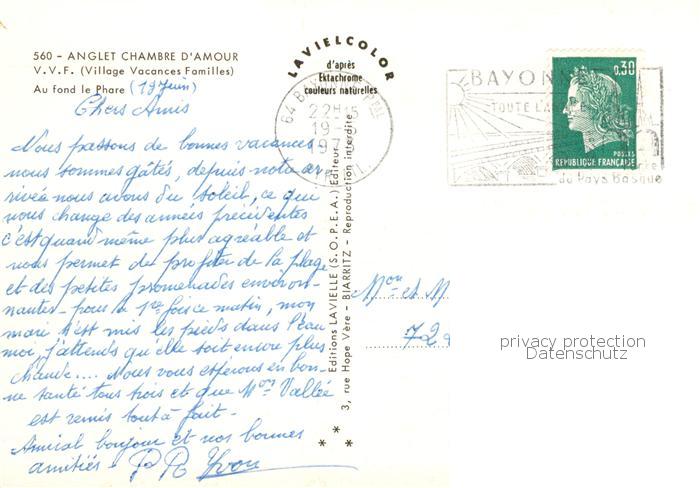 560 - ANGLET CHAMBRE D'AMOUR
V.V.F. (Village Vacances Familles)
Au fond le Phare (19 Juin)
LAVIELCOLOR
d'après
Ektachrome
couleurs naturelles
Chers Amis
Nous passons de bonnes vacances
nous sommes gâtés, depuis notre ar-
rivée nous avons du soleil, ce qui
nous change des années précédentes
c'est quand même plus agréable et
nous permet de profiter de la plage
et des petites promenades environ-
nantes - pour la 1re fois ce matin, mon
mari s'est mis les pieds dans l'eau
moi, j'attends qu'elle soit encore plus
chaude.... Nous vous espérons en bon-
ne santé tous trois et que Mon Vallée
est remis tout à fait -
Amical bonjour et nos bonnes
amitiés - Yvon
Editions LAVIELLE (S.O.P.E.A.) Editeur
3, rue Hope Vère - BIARRITZ - Reproduction interdite
64 B
22H15
19-
BAYONNE
TOUTE L'
du Pays Basque
0,30
POSTES
REPUBLIQUE FRANÇAISE
Mon et M
72
privacy protection
Datenschutz